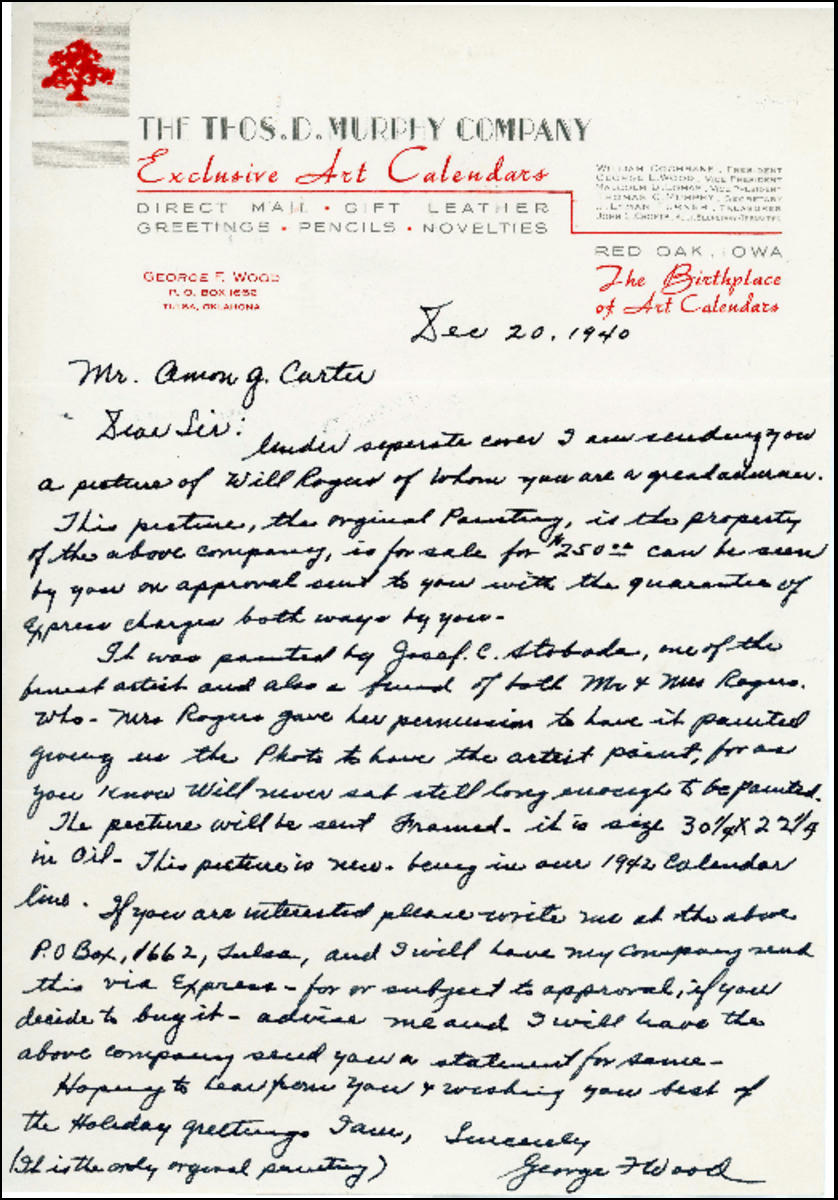 THE THOS. D. MURPHY COMPANY
Exclusive Art Calendars
DIRECT MAIL • GIFT LEATHER
GREETINGS • PENCILS • NOVELTIES
WILLIAM COCHRANE, PRESIDENT
GEORGE L. WOOD, VICE PRESIDENT
MALCOLM D. LOMAS, VICE PRESIDENT
THOMAS C. MURPHY, SECRETARY
TURNER, TREASURER
RED OAK, IOWA
The Birthplace
of Art Calendars
GEORGE F. WOOD
P. O. BOX 1662
TULSA, OKLAHOMA
Dec 20, 1940
Mr. Amon G. Carter
Dear Sir:
Under seperate cover I am sending you
a picture of Will Rogers of whom you are a great admirer.
This picture, the orginal Painting, is the property
of the above company, is for sale for $250.00 can be seen
by you on approval sent to you with the guarantee of
Express charges both ways by you-
It was painted by Josef. C. Stoboda, one of the
finest artist and also a friend of both Mr & Mrs Rogers.
Who - Mrs Rogers gave her permission to have it painted
giving us the Photo to have the artist paint, for as
you know Will never sat still long enough to be painted.
The picture will be sent Framed - it is size 30 1/4 X 22 1/4
in Oil - This picture is new - being in our 1942 Calendar
line. If you are interested please write me at the above
P.O Box, 1662, Tulsa, and I will have my company send
this via Express - for or subject to approval, if you
decide to buy it - advise me and I will have the
above company send you a statement for same -
Hoping to hear from you & wishing you best of
the Holiday greetings I am, Sincerely
(It is the only orginal painting) George F Wood